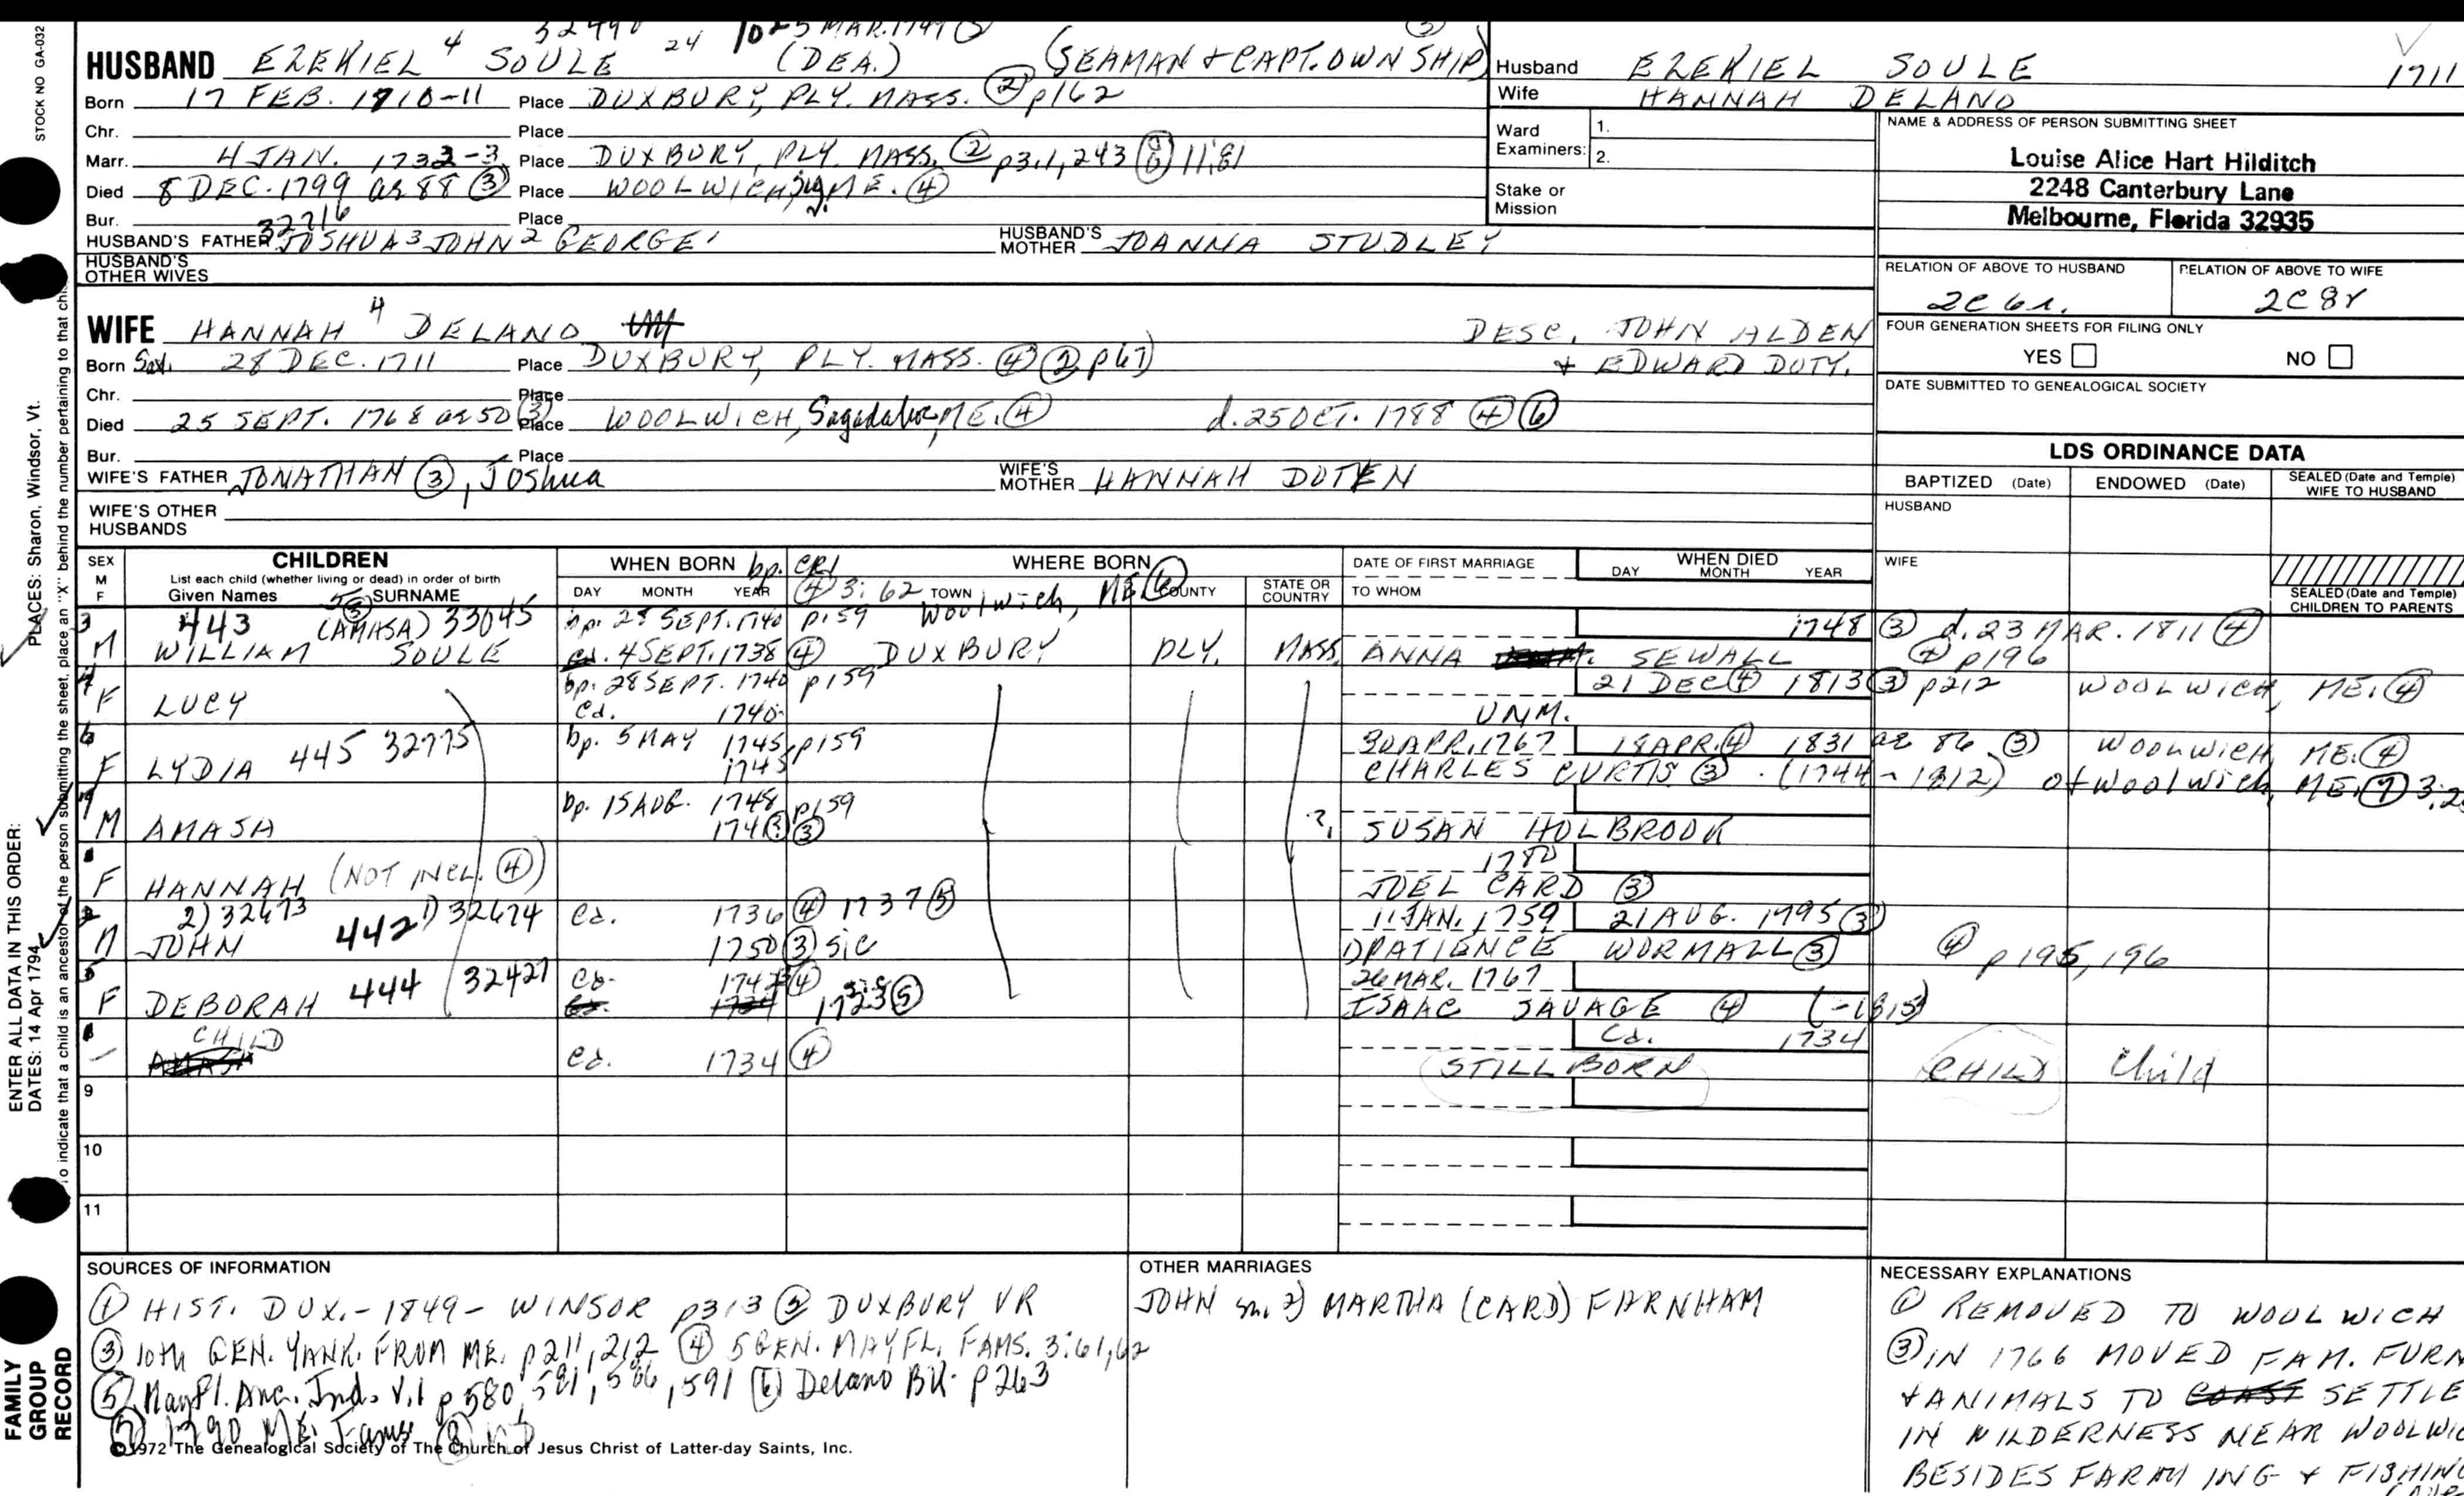 STOCK NO GA-032
32490 24 1025 MAR. 1749 ③
HUSBAND EZEKIEL 4 SOULE (DEA.) (SEAMAN & CAPT. OWN SHIP) ③
Born 17 FEB. 1710-11 Place DUXBURY, PLY. MASS. ② p162
Chr. Place
Marr. 4 JAN. 1732-3 Place DUXBURY, PLY. MASS. ② p311, 243 11:81
Died 8 DEC. 1799 ae 88 ③ Place WOOLWICH, ME. ④
Bur. Place
32216
HUSBAND'S FATHER JOSHUA 3 JOHN 2 GEORGE 1 HUSBAND'S MOTHER JOANNA STUDLEY
HUSBAND'S OTHER WIVES
WIFE HANNAH 4 DELANO DESC. JOHN ALDEN
Born 28 DEC. 1711 Place DUXBURY, PLY. MASS. ④ ② p67 & EDWARD DOTY.
Chr. Place
Died 25 SEPT. 1768 ae 50 ③ Place WOOLWICH, Sagadahoc, ME. ④ d. 25 OCT. 1788 ④ ⑥
Bur. Place
WIFE'S FATHER JONATHAN ③, Joshua WIFE'S MOTHER HANNAH DOTEN
WIFE'S OTHER HUSBANDS
Husband EZEKIEL SOULE 1711
Wife HANNAH DELANO
Ward Examiners: 1.
2.
Stake or Mission
NAME & ADDRESS OF PERSON SUBMITTING SHEET
Louise Alice Hart Hilditch
2248 Canterbury Lane
Melbourne, Florida 32935
RELATION OF ABOVE TO HUSBAND RELATION OF ABOVE TO WIFE
2C 6r. 2C 8r
FOUR GENERATION SHEETS FOR FILING ONLY
YES NO
DATE SUBMITTED TO GENEALOGICAL SOCIETY
LDS ORDINANCE DATA
BAPTIZED (Date) ENDOWED (Date) SEALED (Date and Temple) WIFE TO HUSBAND
HUSBAND
WIFE
SEALED (Date and Temple) CHILDREN TO PARENTS
SEX M F CHILDREN WHEN BORN bp. CR1 WHERE BORN DATE OF FIRST MARRIAGE WHEN DIED
List each child (whether living or dead) in order of birth
Given Names SURNAME DAY MONTH YEAR ④ 3:62 TOWN Woolwich, ME ⑥ COUNTY STATE OR COUNTRY TO WHOM DAY MONTH YEAR
3 443 (AMASA) 33045 bp. 28 SEPT. 1740 p159 1748 ③ d. 23 MAR. 1811 ④
M WILLIAM SOULE 4 SEPT. 1738 ④ DUXBURY PLY. MASS. ANNA SEWALL ④ p196
4 bp. 28 SEPT. 1740 p159 21 DEC ④ 1813 ③ p212 WOOLWICH, ME. ④
F LUCY Cd. 1740 UNM.
6 445 32775 bp. 5 MAY 1745 p159 30 APR. 1767 18 APR. ④ 1831 ae 86 ③ WOOLWICH, ME. ④
F LYDIA 1745 CHARLES CURTIS ③ (1744-1812) of Woolwich, ME. ⑦
bp. 15 AUG. 1748 p159
M AMASA ③ SUSAN HOLBROOK
1780
F HANNAH (NOT INCL. ④) JOEL CARD ③
2) 32673 442 1) 32674 Cd. 1736 ④ 1737 ⑤ 11 JAN. 1759 21 AUG. 1795 ③
M JOHN 1750 ③ sic 1) PATIENCE WORMALL ③ ④ p195, 196
5 444 32427 Cd. ④ sic 26 MAR. 1767
F DEBORAH 1723 ⑤ ISAAC SAVAGE ④ (-1815)
CHILD Cd. 1734
Cd. 1734 ④ STILLBORN CHILD Child
9
10
11
SOURCES OF INFORMATION
① HIST. DUX. - 1849 - WINSOR p313 ② DUXBURY VR
③ 10th GEN. YANK. FROM ME. p211, 212 ④ 5 GEN. MAYFL. FAMS. 3:61, 62
⑤ Mayfl. Anc. Ind. V.1 p580, 581, 586, 591 ⑥ Delano BK. p263
⑦ 1790 ME. Fams ⑧
©1972 The Genealogical Society of The Church of Jesus Christ of Latter-day Saints, Inc.
OTHER MARRIAGES
JOHN m. 2) MARTHA (CARD) FARNHAM
NECESSARY EXPLANATIONS
① REMOVED TO WOOLWICH
③ IN 1766 MOVED FAM. FURN
& ANIMALS TO SETTLE
IN WILDERNESS NEAR WOOLWIC
BESIDES FARMING & FISHING
PLACES: Sharon, Windsor, Vt.
ENTER ALL DATA IN THIS ORDER:
DATES: 14 Apr 1794
To indicate that a child is an ancestor of the person submitting the sheet, place an "X" behind the number pertaining to that chi
FAMILY GROUP RECORD